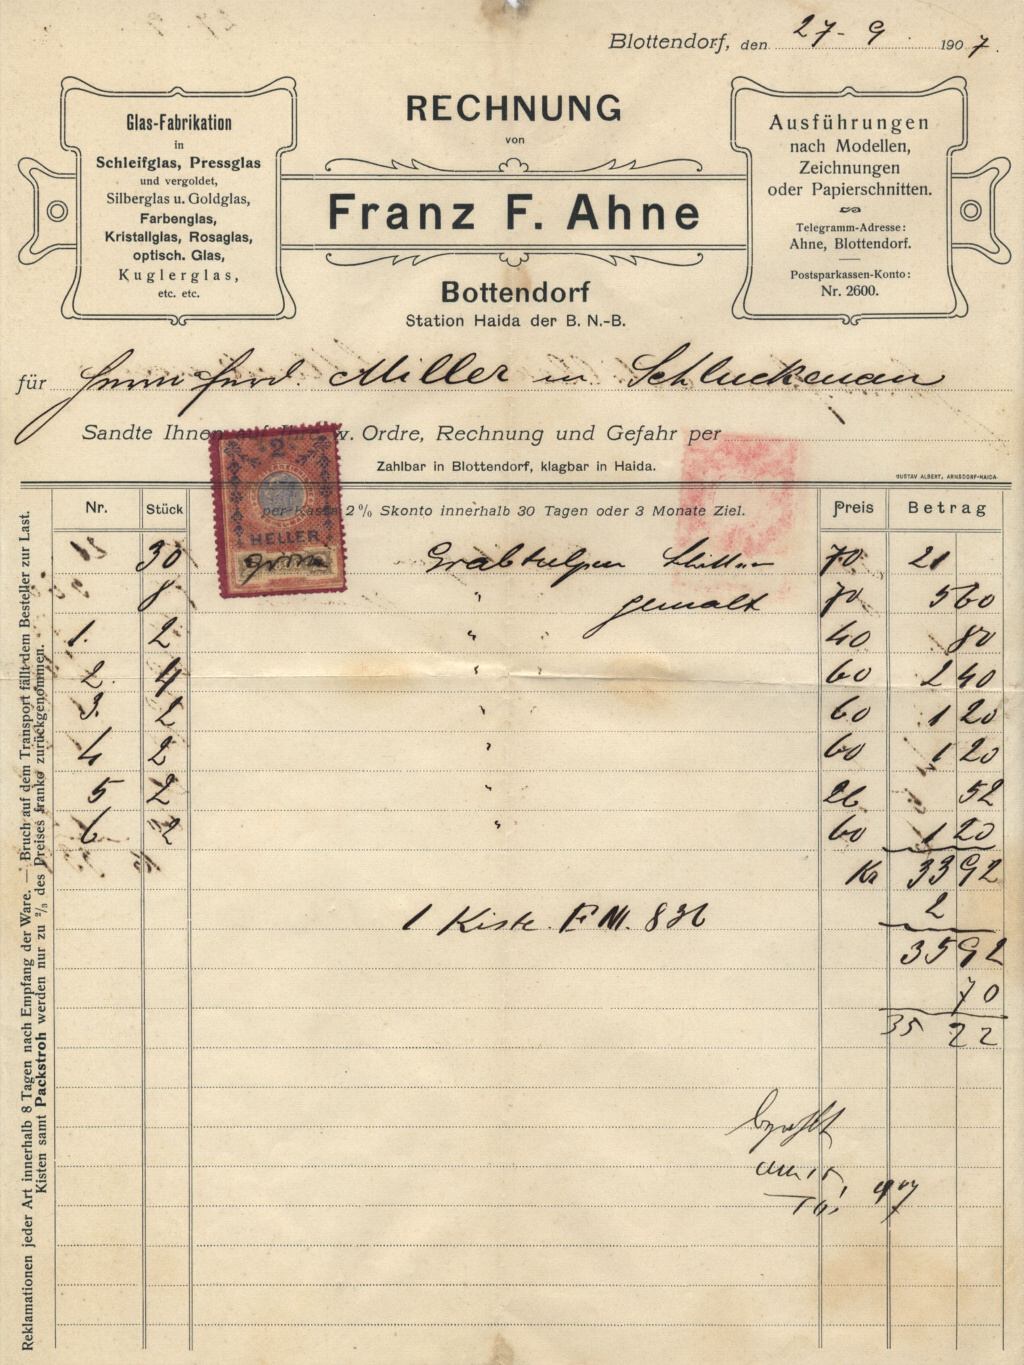 Blottendorf, den 27-9. 1907.
RECHNUNG
von
Franz F. Ahne
Bottendorf
Station Haida der B. N.-B.
Glas-Fabrikation
in
Schleifglas, Pressglas
und vergoldet,
Silberglas u. Goldglas,
Farbenglas,
Kristallglas, Rosaglas,
optisch. Glas,
Kuglerglas,
etc. etc.
Ausführungen
nach Modellen,
Zeichnungen
oder Papierschnitten.
Telegramm-Adresse:
Ahne, Blottendorf.
Postsparkassen-Konto:
Nr. 2600.
für Herrn Ferd. Miller in Schluckenau
Sandte Ihnen auf Ihre w. Ordre, Rechnung und Gefahr per
Zahlbar in Blottendorf, klagbar in Haida.
GUSTAV ALBERT, ARNSDORF-HAIDA
2
HELLER
Nr. Stück per Kassa 2% Skonto innerhalb 30 Tagen oder 3 Monate Ziel. Preis Betrag
30 Grabtulpen 70 21
8. " gemalt 70 5 60
1. 2 " " 40 80
2. 4 " " 60 2 40
3. 2 " " 60 1 20
4 2 " 60 1 20
5 2 " 26 52
6 2 " 60 1 20
Kr 33 92
1 Kiste. F.M. 836 2
35 92
70
35 22
bezahlt
am 15
10! 907
Reklamationen jeder Art innerhalb 8 Tagen nach Empfang der Ware. — Bruch auf dem Transport fällt dem Besteller zur Last.
Kisten samt Packstroh werden nur zu ²/₃ des Preises franko zurückgenommen.